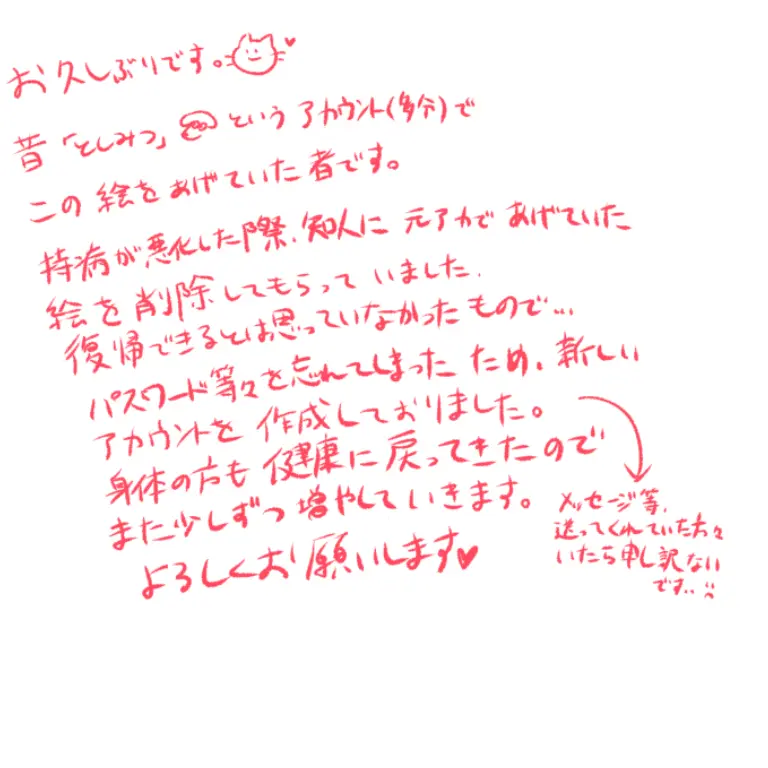 お久しぶりです。
昔「としみつ」というアカウント(多分)で
この絵をあげていた者です。
持病が悪化した際、知人に元アカであげていた
絵を削除してもらっていました、
復帰できるとは思っていなかったもので…
パスワード等々を忘れてしまったため、新しい
アカウントを作成しておりました。
身体の方も健康に戻ってきたので
また少しずつ増やしていきます。
よろしくお願いします♥
メッセージ等、
送ってくれていた方々
いたら申し訳ない
です..